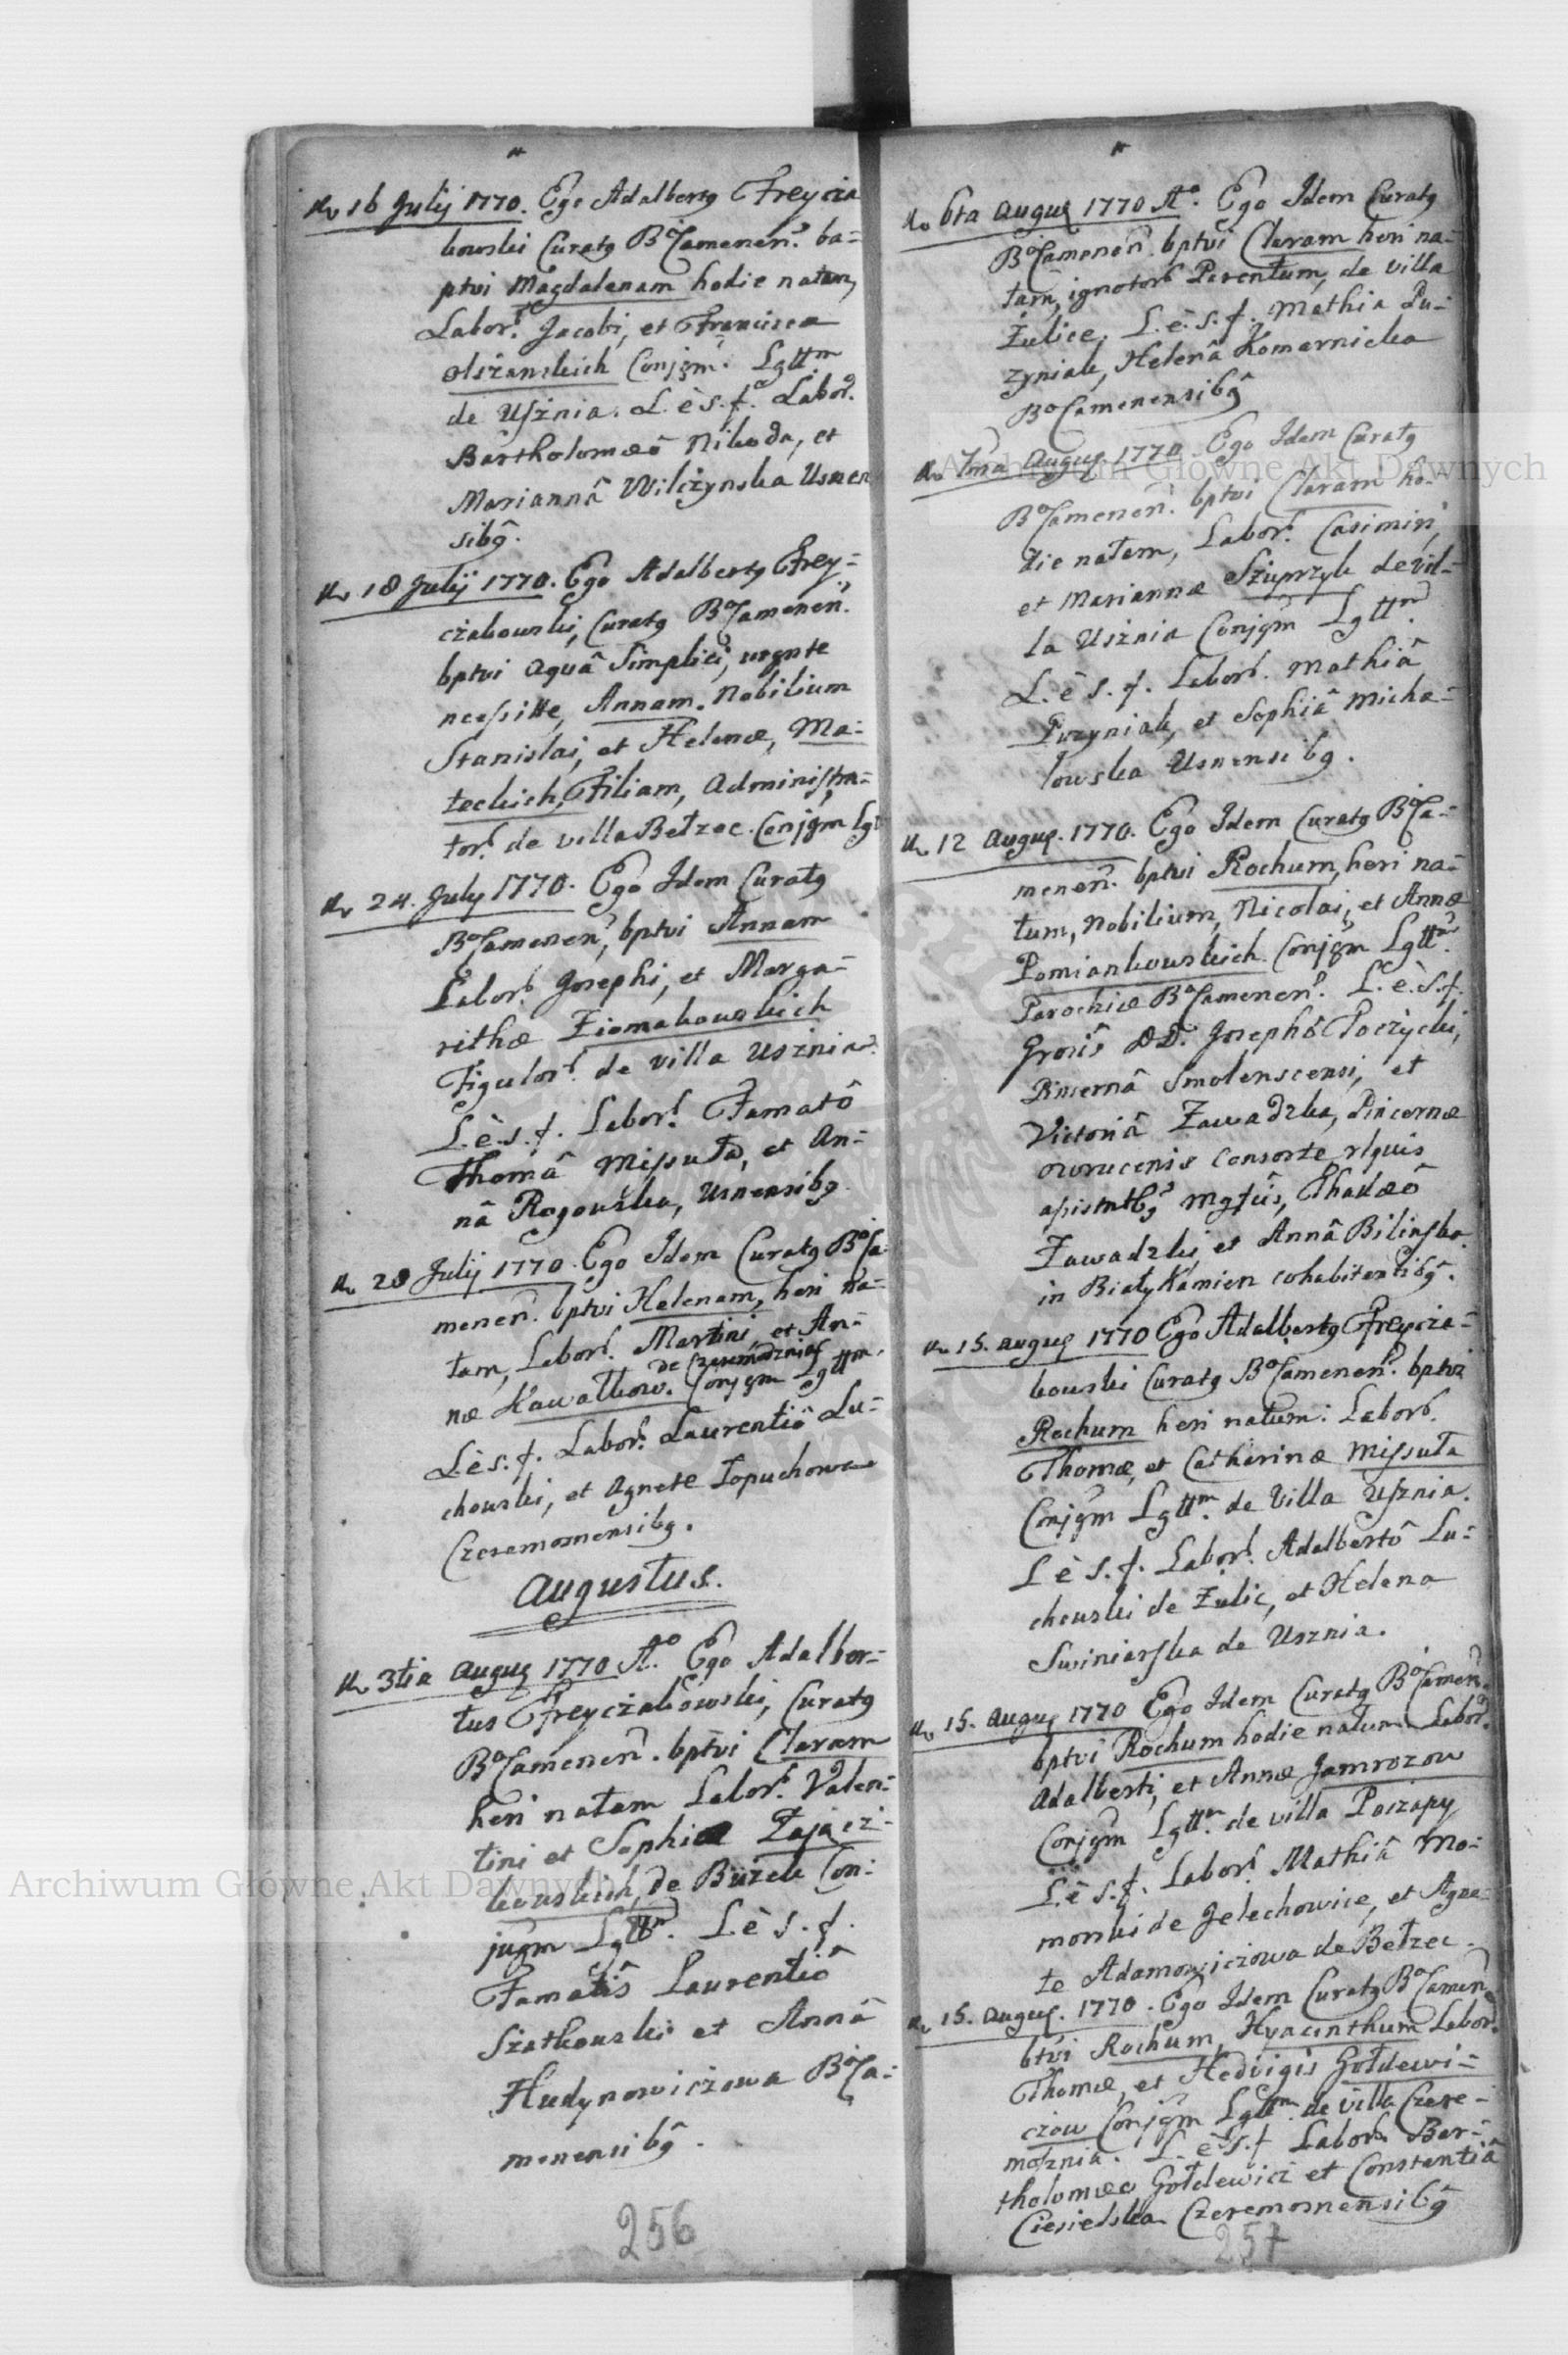 16 Julij 1770. Ego Adalbertg Freycza
kowski Curatg BoCamenen. ba=
ptvi Magdalenam hodie natam,
Labor. Jacobi, et Francisca
olszanskich Conjgm. Lgttm
de Usznia. L. è s. f. Labor.
Bartholomæô Nikoda, et
Mariannâ Wilczynska Usnen
sibg.
18 Julij 1770. Ego Adalbertg Frey=
czakowski, Curatg BoCamenen.
bptvi aquâ Simplici, urgnte
ncessitte, Annam. Nobilium
Stanislai, et Helenæ, Ma=
teckich, Filiam, Administra=
tor. de villa Bełzec. Conjgm Lgt
24. July 1770. Ego Idem Curatg
BoCamenen, bptvi Annam
Labor. Josephi, et Marga=
rithæ Ziomakowskich
Figulor. de villa Usznia.
L. è. s. f. Labor. Famatô
Thomâ Missuta, et An=
nâ Rogowska, Usnensibg
28 Julij 1770. Ego Idem Curatg BoCa
menen. bptvi Helenam, heri na=
tam, Labor. Martini, et An=
de Czeremosznia
næ Kawalkow. Conjgm Lgttm.
L. è s. f. Labor. Laurentiô Lu=
chowski, et Agnete Łopuchowa
Czeremosnensibg.
Augustus.
3tia Augug 1770 Ao. Ego Adalber=
tus Freyczakowski, Curatg
BoCamenen. bptvi Claram
heri natam Labor. Valen=
tini et Sophiæ Zającz=
kowskich, de Buzek Con=
jugm Lgttm. L. è s. f.
Famatis Laurentiô
Szatkowski et Annâ
Hudynowiczowa BoCa=
menensibg.
256
6ta Augug 1770 Ao. Ego Idem Curatg
BoCamenen. bptvi Claram heri na=
tam, ignotor. Parentum, de villa
Żulice. L. è. s. f. Mathia Pu=
zyniak, Helenâ Komarnicka
BoCamenensibg
7ma Augug. 1770. Ego Idem Curatg
BoCamenen. bptvi Claram ho=
die natam, Labor. Casimiri,
et Mariannæ Szuprzyk de vil=
la Usznia Conjgm Lgttm.
L. è s. f. Labor. Mathiâ
Puzyniak, et Sophiâ Micha=
lowska Usnensibg.
12 Augug. 1770. Ego Idem Curatg BoCa=
menen. bptvi Rochum, heri na=
tum, Nobilium, Nicolai, et Annæ
Pomiankowskich Conjgm Lgttm.
Parochiæ BoCamenen. L. è. s. f.
DD. Josephô Poczycki,
Pincernâ Smolenscensi, et
Victoriâ Zawadzka, Pincernæ
owrucensis Consorte, rlquis
Thadæô
Zawadzki et Annâ Bilinska
in Biały Kamien cohabitantibg.
15. Augug 1770 Ego Adalbertg Freycza=
kowski Curatg BoCamenen. bptvi
Rochum heri natum. Labor.
Thomæ, et Catharinæ Missuta
Conjgm Lgttm. de Villa Usznia.
L è s. f. Labor. Adalbertô Lu=
chowski de Żulic, et Helena
Swiniarska de Usznia.
15. Augug 1770 Ego Idem Curatg BoCamen
bptvi Rochum hodie natum Labor.
Adalberti, et Annæ Jamrozow
Conjgm Lgttm. de villa Poczapy
L. è s. f. Labor. Mathiâ Mo=
monski de Jelechowice, et Agne=
te Adamowiczowa de Bełzec.
15. Augug. 1770. Ego Idem Curatg BoCamen
btvi Rochum, Hyacinthum Labor.
Thomæ, et Hedvigis Gołdewi=
czow Conjgm Lgttm. de villa Czere=
mosznia. L. è s. f Labor. Bar=
tholomæo Gołdewicz et Constantiâ
Ciesielska Czeremosnensibg
257
Archiwum Główne Akt Dawnych
Archiwum Główne Akt Dawnych